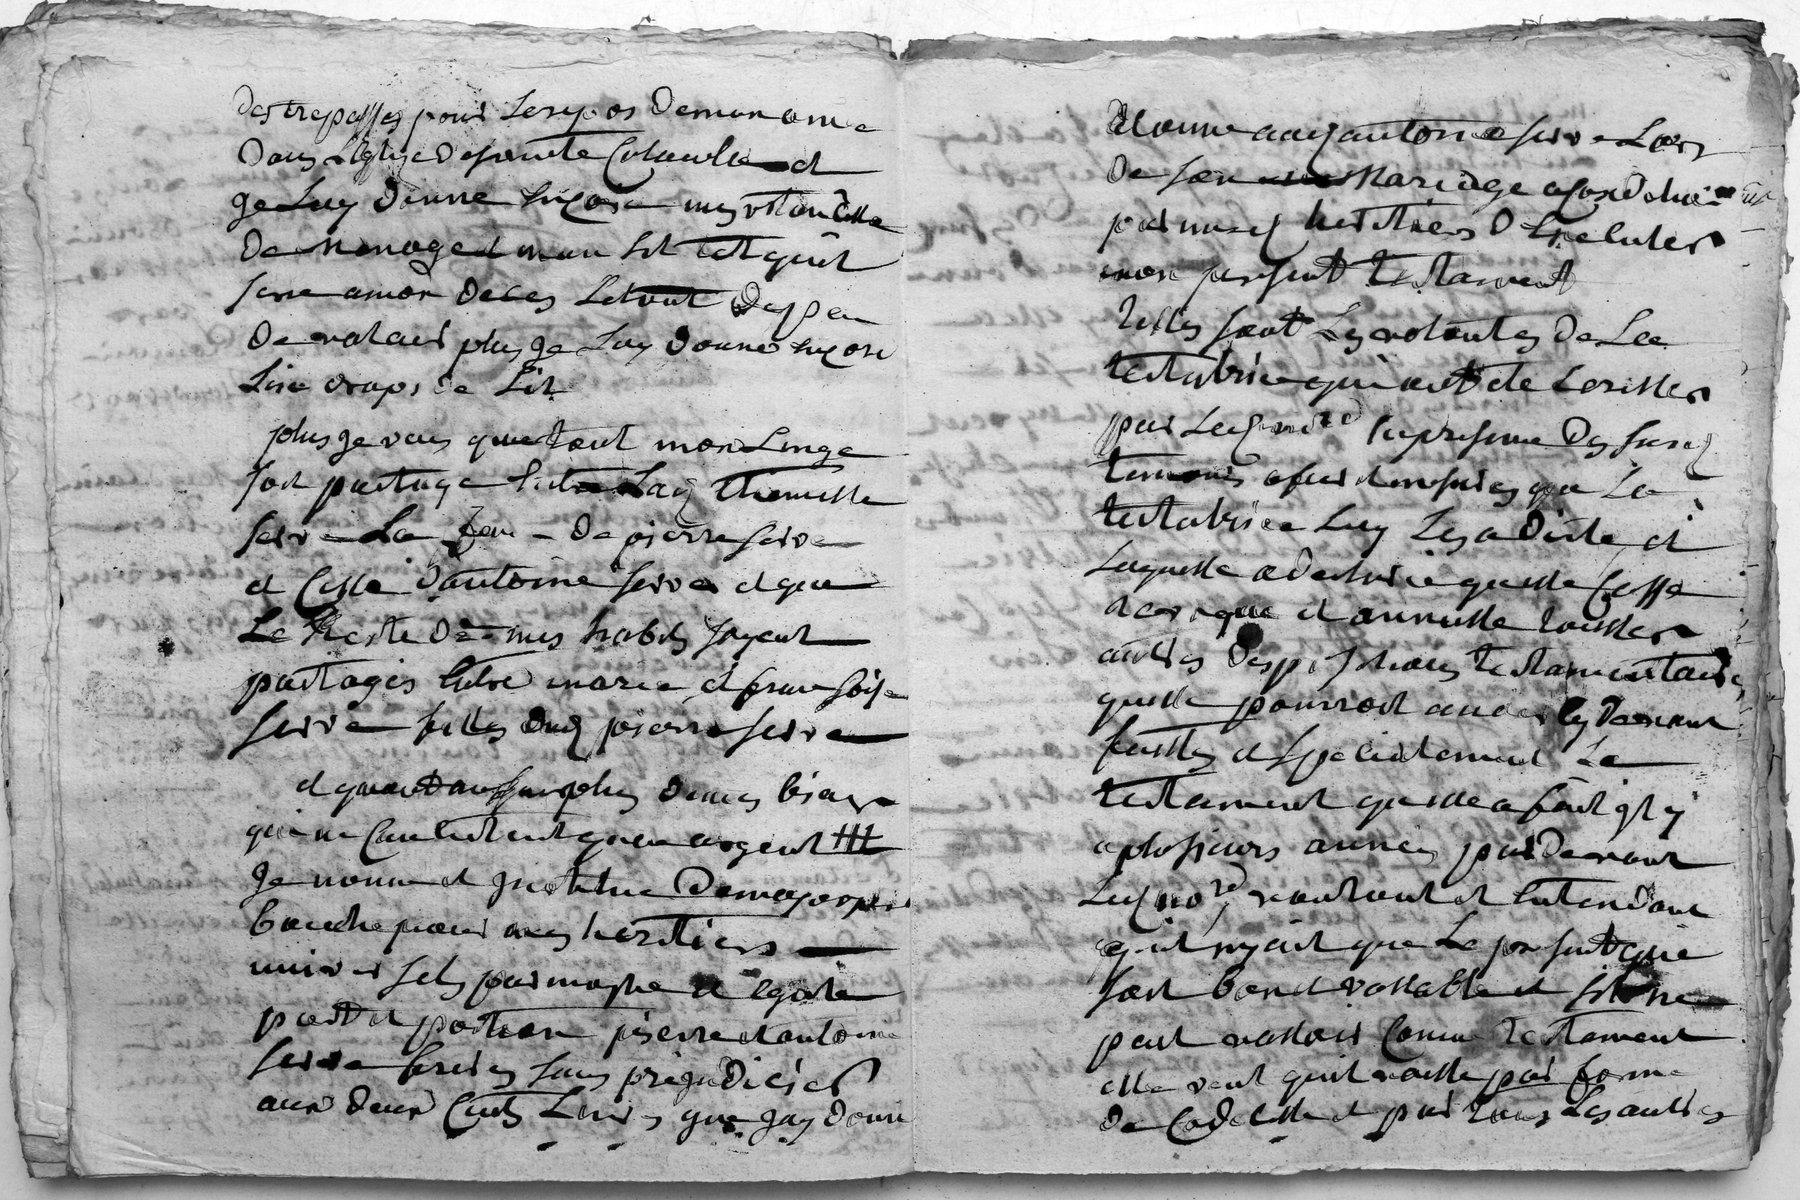 des trepasses pour le repos de mon ame
dans leglise de sainte et
je luy donne encore mes ustancille
de menage et mon lit tel quil
sera amon deces letout de peu
de valeur plus je luy donne encore
draps de lit
plus je veus que tout mon linge
soit partage entre lad thienette
serve la fem de pierre serve
et celle dantoine serve et que
le reste de mes habits soyent
partages entre marie et fransoise
serve filles dud pierre serve
et quant au surplus de mes biens
qui ne consistent quen argent
je nomme et institue de ma propre
bouche pour mes heritiers
universels par moytie et egale
part et portion pierre et antoine
serve freres sans prejudicier
aux deux cents livres que jay donne
et donne aud antoine serve lors
de son mariage
par mesd heritiers dexecuter
mon present testament
telles sont les volontes de la
testatrice qui ont ete
par led en presence des susd
temoins que la
testatrice luy les a dicte et
laquelle a declare quelle casse
revoque et annulle toutes
autres dispositions testamentaires
quelle pourroit avoir cy devant
faittes et specialement le
testament quelle a fait il y
a plusieurs annees par devant
led no.re voulant et entendant
quil nyait que le present qui
soit bon et vallable et sil ne
peut valloir comme testament
elle veut quil vaille par forme
de codicille et par tous les autres